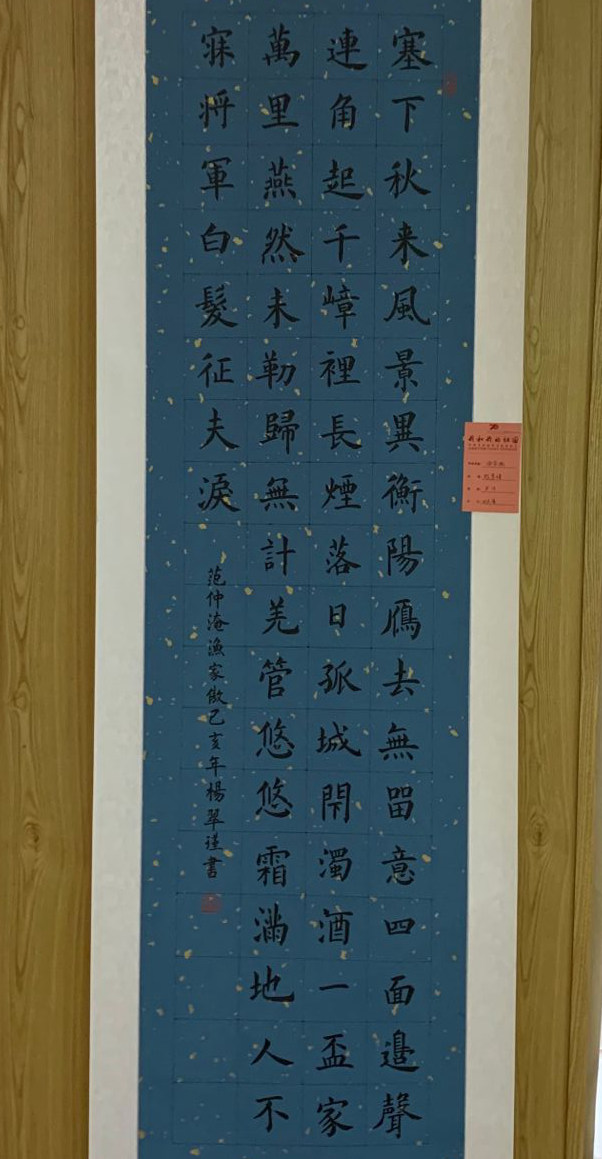 塞下秋来風景異衡陽鴈去無畱意四面邉聲
連角起千嶂裡長煙落日孤城閇濁酒一盃家
萬里燕然未勒歸無計羌管悠悠霜滿地人不
寐将軍白髮征夫淚
范仲淹漁家傲己亥年楊翠瑾書